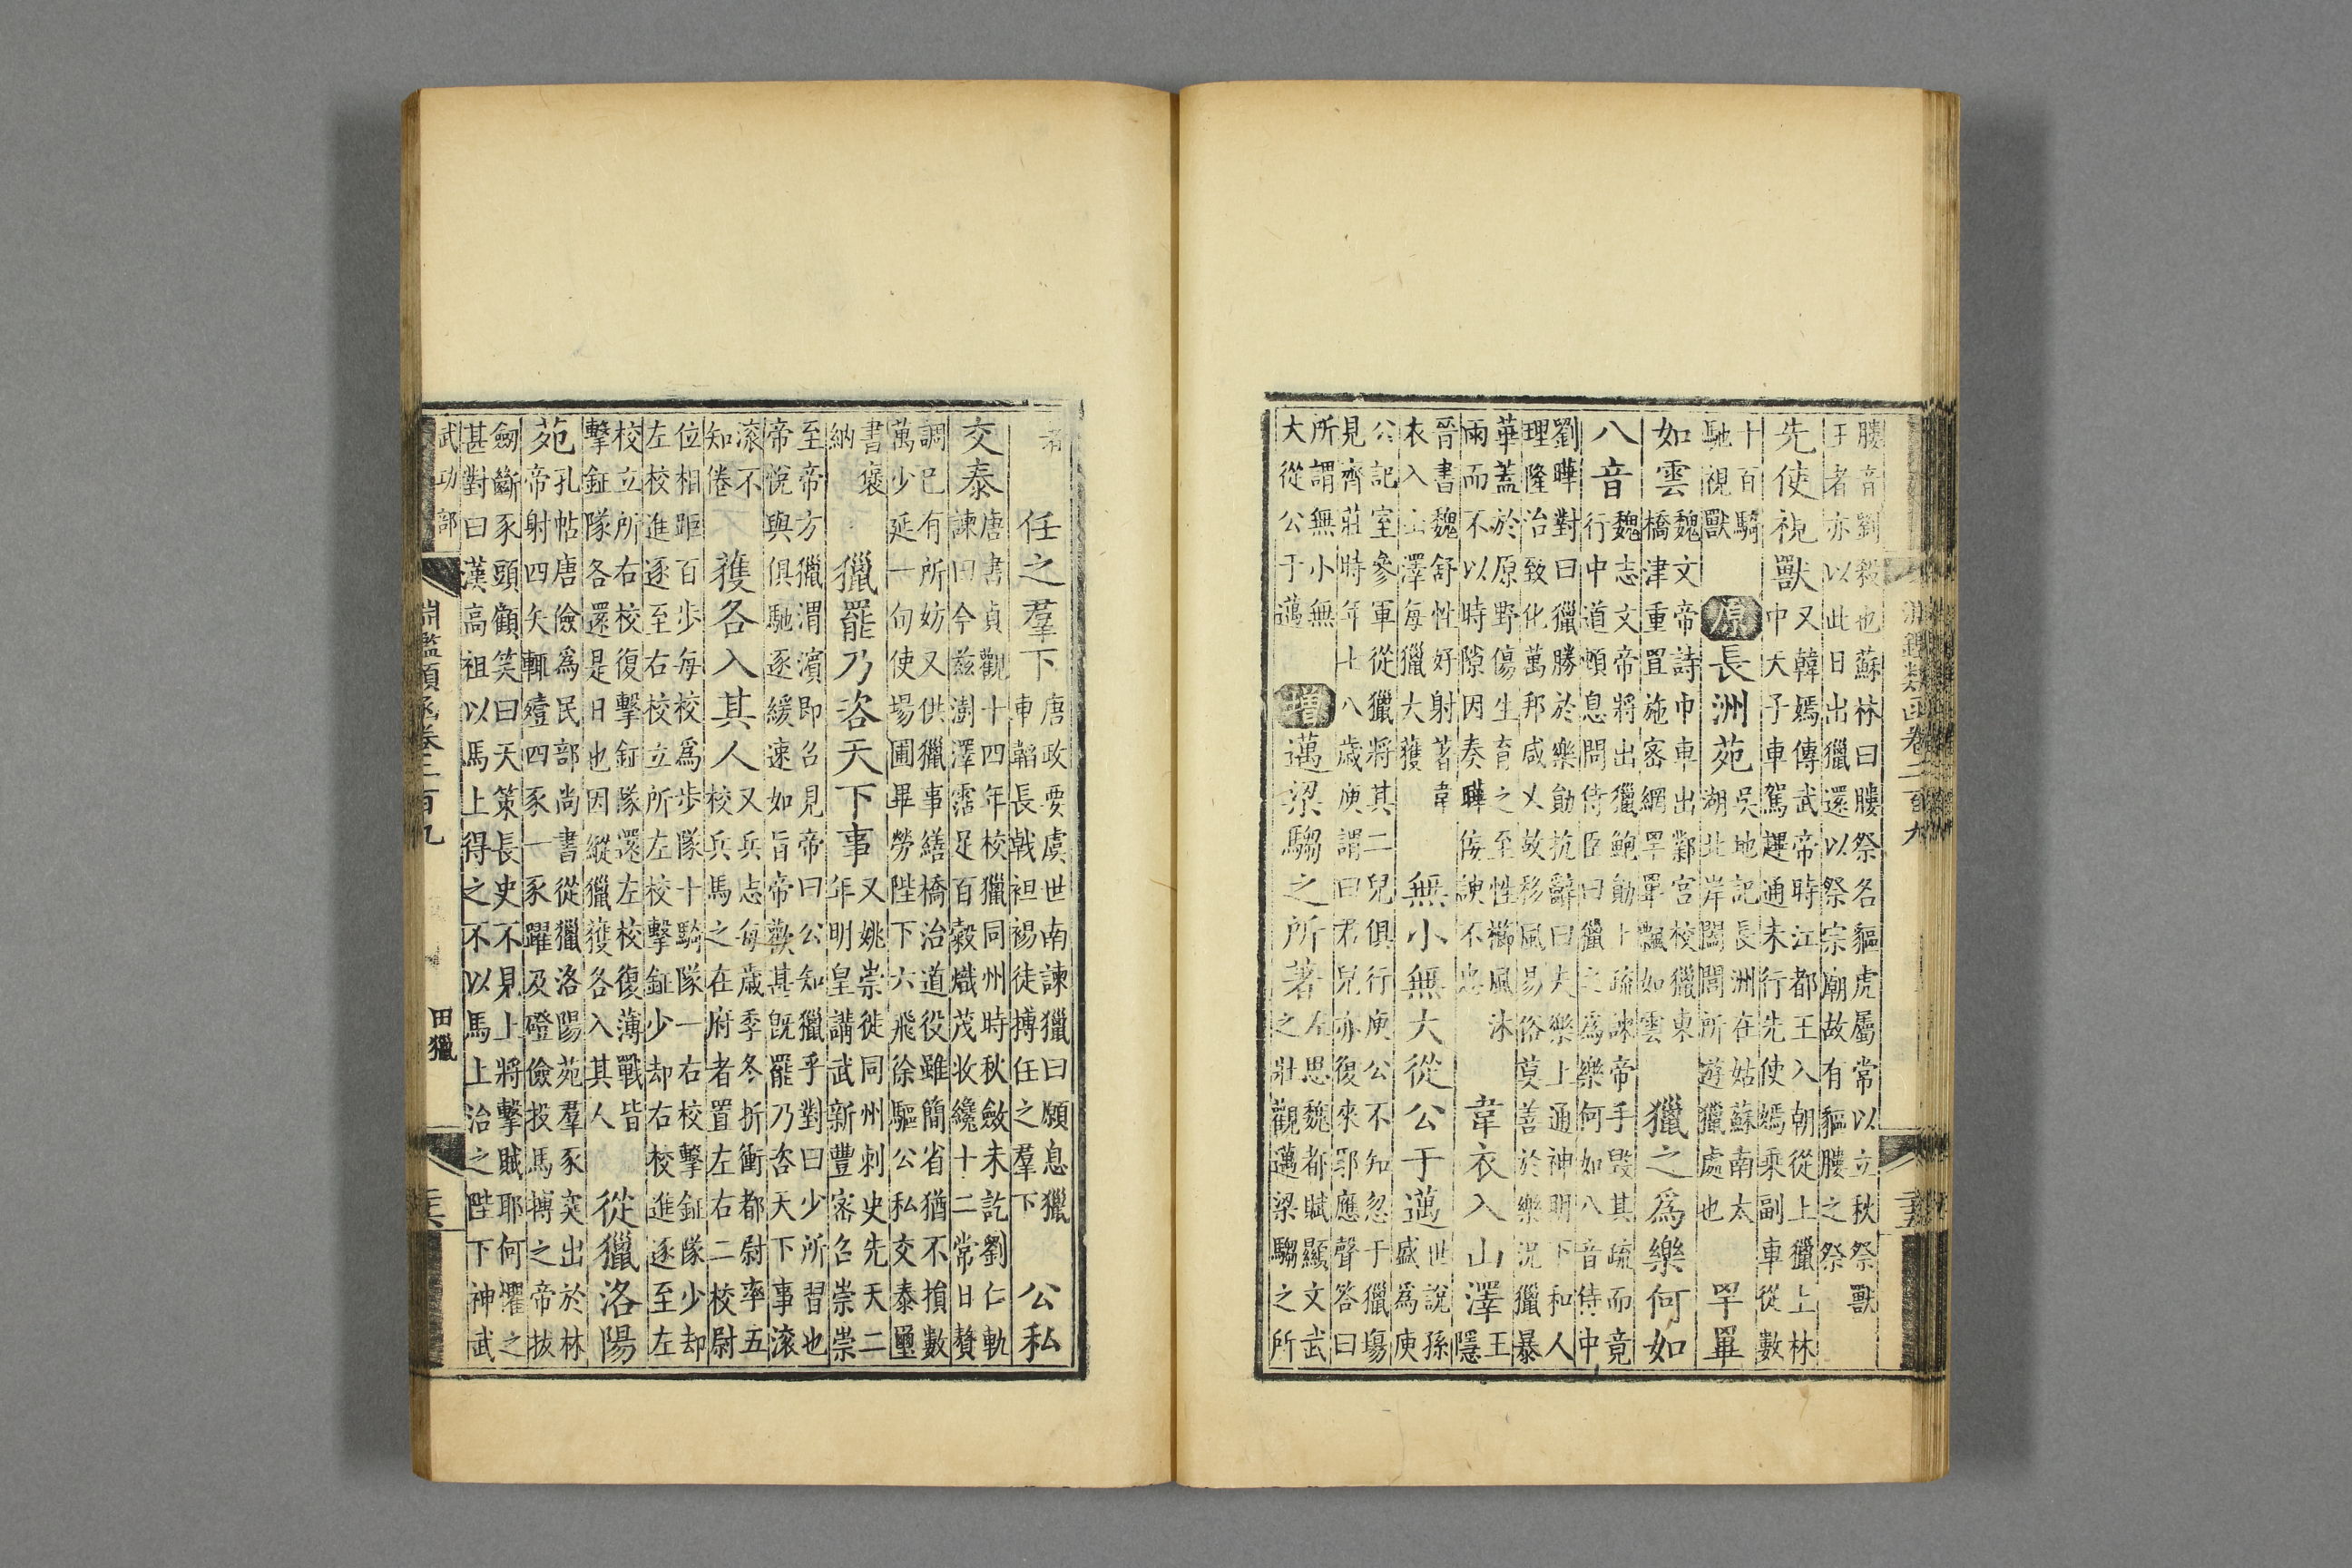 膢音劉殺也蘇林曰膢祭名貙虎屬常以立秋祭獸
王者亦以此日出獵還以祭宗廟故有貙膢之祭
先使視獸
又韓嫣傳武帝時江都王入朝從上獵上林
中天子車駕䟆通未行先使嫣乘副車從數
十百騎
馳視獸
原長洲苑
吳地記長洲在姑蘇南太
湖北岸闔閭所遊獵處也
罕罼
如雲
魏文帝詩巾車出鄴宮校獵東
橋津重罝施密網罕罼飄如雲
獵之為樂何如
八音
魏志文帝將出獵鮑勛上疏諫帝手毀其疏而竟
行中道頓息問侍臣曰獵之為樂何如八音侍中
劉曄對曰獵勝於樂勛抗辭曰夫樂上通神明下和人
理隆治致化萬邦咸乂故移風易俗莫善於樂況獵暴
華蓋於原野傷生育之至性櫛風沐
雨而不以時隙因奏曄佞諛不忠
韋衣入山澤
王
隱
晉書魏舒性好射著韋
衣入山澤每獵大獲
無小無大從公于邁
世說孫
盛為庾
公記室參軍從獵將其二兒俱行庾公不知忽于獵場
見齊莊時年七八歲庾謂曰君兒亦復來耶應聲答曰
所謂無小無
大從公于邁
增邁梁騶之所著
左思魏都賦顯文武
之壯觀邁梁騶之所
淵鑑類函卷二百九
著
任之羣下
唐政要虞世南諫獵曰願息獵
車韜長戟袒裼徒搏任之羣下
公私
交泰
唐書貞觀十四年校獵同州時秋斂未訖劉仁軌
諫曰今茲澍澤霑足百穀熾茂妝纔十二常日贅
調已有所妨又供獵事繕橋治道役雖簡省猶不損數
萬少延一旬使場圃畢勞陛下六飛徐驅公私交泰璽
書褒
納
獵罷乃咨天下事
又姚崇徙同州刺史先天二
年明皇講武新豐密召崇崇
至帝方獵渭濱即召見帝曰公知獵乎對曰少所習也
帝悅與俱馳逐緩速如旨帝歡甚旣罷乃咨天下事滾
滾不
知倦
獲各入其人
又兵志每歲季冬折衝都尉率五
校兵馬之在府者置左右二校尉
位相距百步每校為步隊十騎隊一右校擊鉦隊少却
左校進逐至右校立所左校擊鉦少却右校進逐至左
校立所右校復擊鉦隊還左校復薄戰皆
擊鉦隊各還是日也因縱獵獲各入其人
從獵洛陽
苑
孔帖唐儉為民部尚書從獵洛陽苑羣豕突出於林
帝射四矢輒殪四豕一豕躍及磴儉投馬搏之帝拔
劒斷豕頭顧笑曰天策長史不見上將擊賊耶何懼之
甚對曰漢高祖以馬上得之不以馬上治之陛下神武
武功部
淵鑑類函卷二百九
田獵